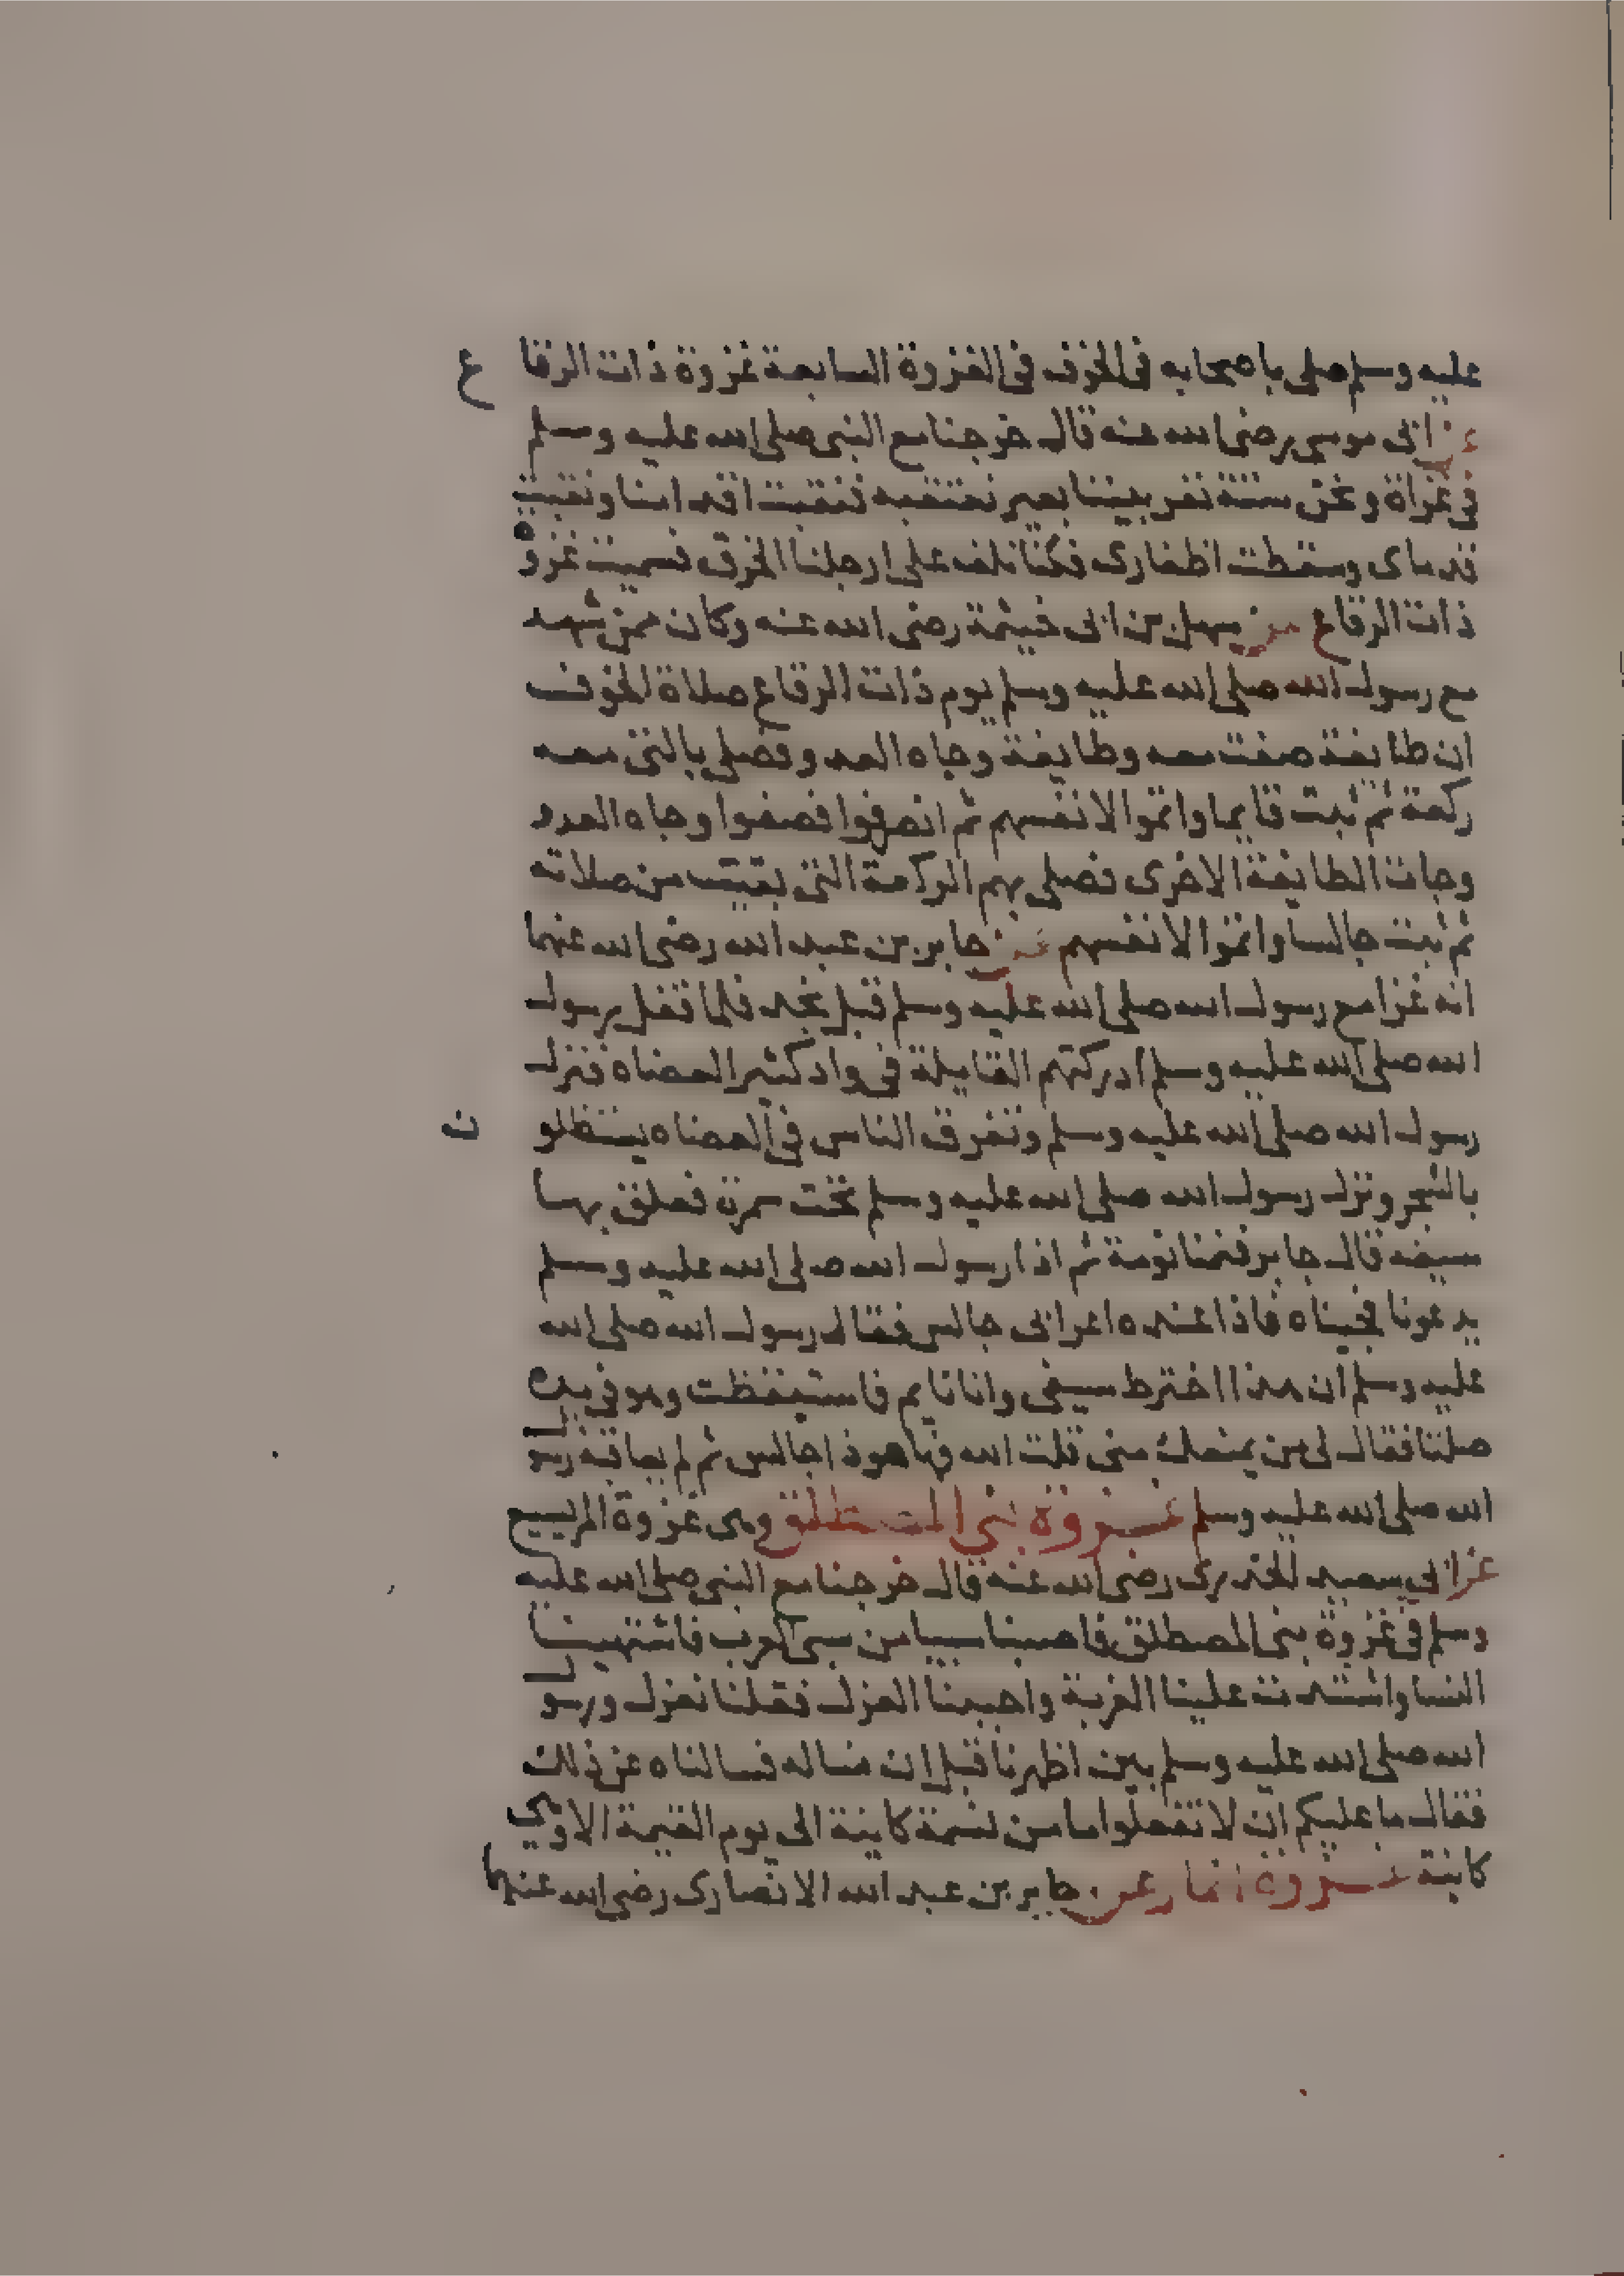 عليه وسلم صلى باصحابه في الخوف في الغزوة السابعة غزوة ذات الرقا ع
عن ابى موسى رضى الله عنه قال خرجنا مع النبى صلى الله عليه وسلم
في غزاة ونحن ستة نفر بيننا بعير نعتقبه فنقبت اقدامنا ونقبت
قدماى وسقطت اظفارى فكنا نلف على ارجلنا الخرق فسميت غزوة
ذات الرقاع عن سهل بن ابى خيثمة رضى الله عنه وكان ممن شهد
مع رسول الله صلى الله عليه وسلم يوم ذات الرقاع صلاة الخوف
ان طايفة صفت معه وطايفة وجاه العدو فصلى بالتى معه
ركعة ثم ثبت قايما واتموا لانفسهم ثم انصرفوا فصفوا وجاه العدو
وجات الطايفة الاخرى فصلى بهم الركعة التى بقيت من صلاته
ثم ثبت جالسا واتموا لانفسهم عن جابر بن عبد الله رضى الله عنهما
انه غزا مع رسول الله صلى الله عليه وسلم قبل نجد فلما قفل رسول
الله صلى الله عليه وسلم ادركتهم القايلة في واد كثير العضاه فنزل
رسول الله صلى الله عليه وسلم وتفرق الناس في العضاه يستظلو ن
بالشجر ونزل رسول الله صلى الله عليه وسلم تحت سمرة فعلق بها
سيفه قال جابر فنمنا نومة ثم اذا رسول الله صلى الله عليه وسلم
يدعونا فجيناه فاذا عنده اعرابى جالس فقال رسول الله صلى الله
عليه وسلم ان هذا اخترط سيفى وانا نايم فاستيقظت وهو في يده
صلتا فقال لى من يمنعك منى قلت الله فها هو ذا جالس ثم لم يعاقبه رسول
الله صلى الله عليه وسلم غزوة بنى المصطلق وهى غزوة المريسيع
عن ابى سعيد الخدرى رضى الله عنه قال خرجنا مع النبى صلى الله عليه
وسلم في غزوة بنى المصطلق فاصبنا سبيا من سبى العرب فاشتهينا
النسا واشتدت علينا العزبة واحببنا العزل فقلنا نعزل ورسول
الله صلى الله عليه وسلم بين اظهرنا قبل ان نساله فسالناه عن ذلك
فقال ما عليكم ان لا تفعلوا ما من نسمة كاينة الى يوم القيمة الا وهى
كاينة غزوة انمار عن جابر بن عبد الله الانصارى رضى الله عنهما